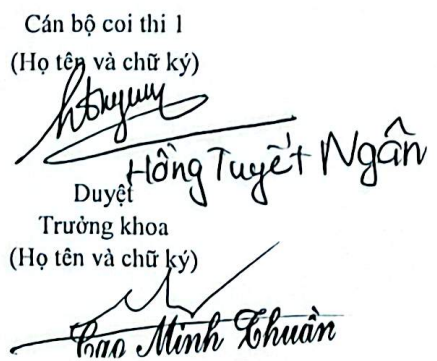 Cán bộ coi thi 1
(Họ tên và chữ ký)
Hồng Tuyết Ngân
Duyệt
Trưởng khoa
(Họ tên và chữ ký)
Cao Minh Thuần